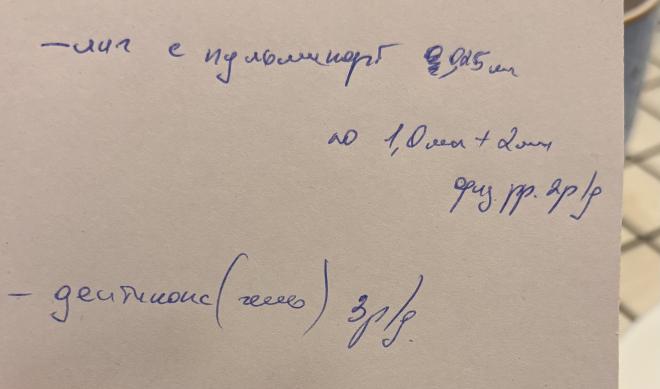 - инг с пульмикорт 0,25 мг
по 1,0 мл + 2 мл
физ. рр. 2р/д
- дентинокс (гель) 3р/д.